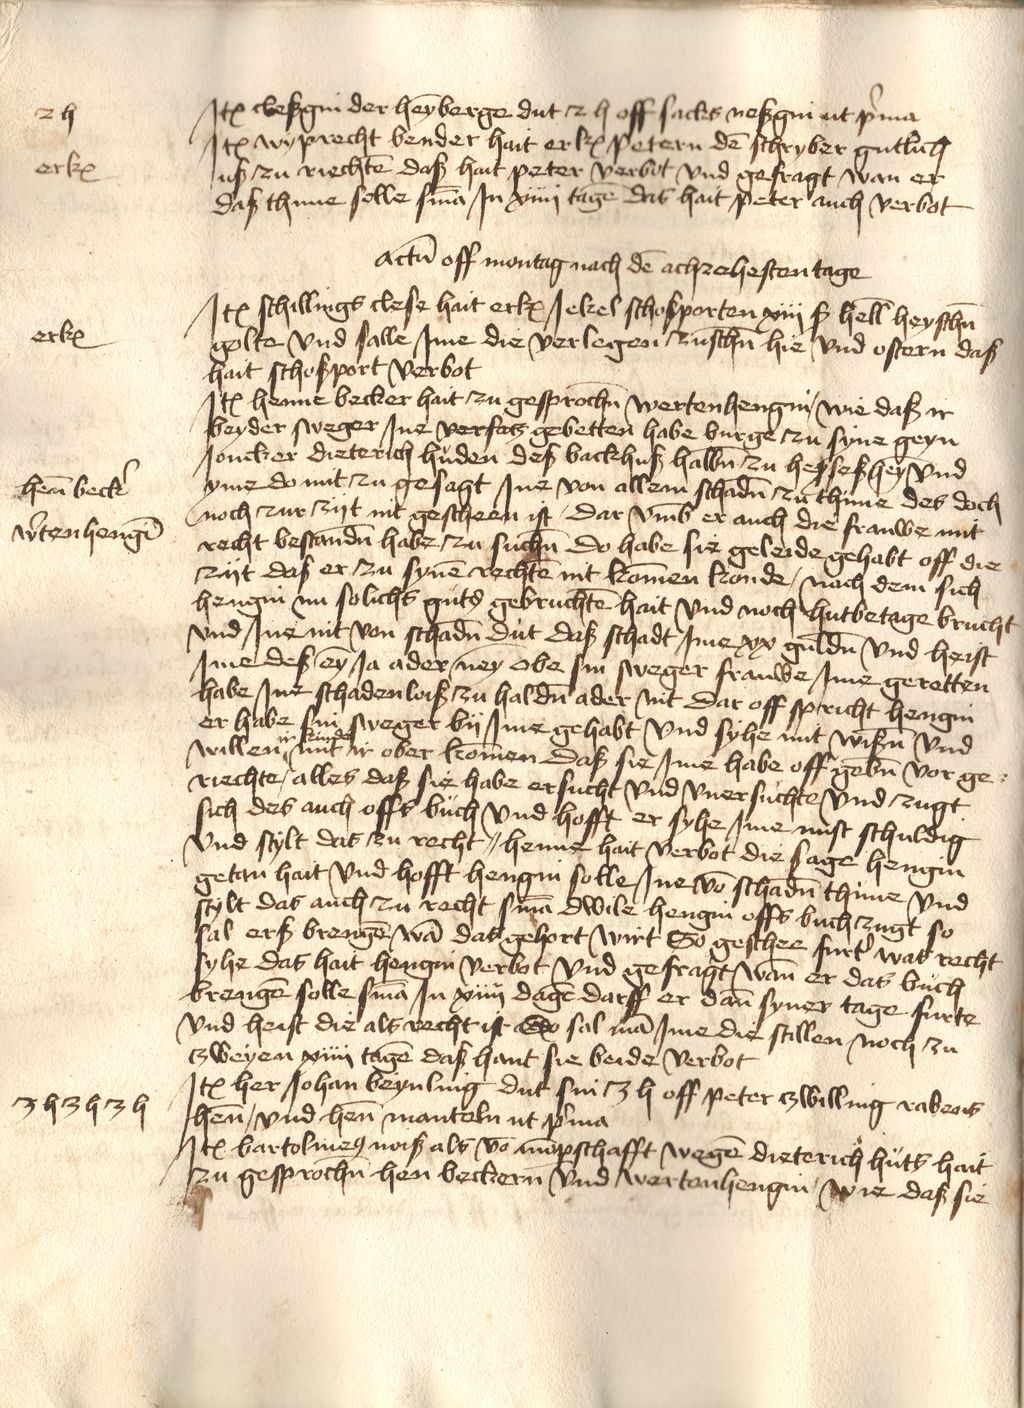 2 h
Itẽ cleßgin der heyberge dut 2 h off sacks neßgin ut p͛ma
erkẽ
Itẽ wyprecht bender hait erkẽ petern dẽ schryber gutlich
uß zu riechtẽ daß hait peter verbot und gefragt wan er
daß thune solle sñia In xiiii tagẽ das hait peter auch verbot
actũ off montag nach dẽ achzehesten tage
erkẽ
Itẽ schillings clese hait erkẽ Jekel schoßporten xiiii ß hell heyschñ
golte und salle Ime die verlegen zuschñ hie und ostern daß
hait schoßport verbot
henñ beck͛
w͛tenhengĩ
Itẽ henne becker hait zu gesprochñ wertenhengin wie daß ir
beyder sweger Ine gebetten habe burge zu syne geyn
Joncker dieterich huden deß backhuß halbñ zu und
yme do mit zu gesagt Ine von allem schadñ zu thune des doch
noch zur zijt nit gescheen ist / dar vmb er auch die frauwe mit
recht bestandñ habe zu suchñ do habe sie geleide gehabt off die
zijt daß er zu synẽ rechtẽ nit komen konde / nach dem sich
hengin nu solichs guts gebruchtẽ hait und noch hutbetage brucht
und Ine nit von schadñ dut daß schadt Ime xx guldñ und heist
Ime deß eyn Ja ader neyn obe sin sweger frauwe Ime geretten
habe Ine schadenloiß zu haldñ ader nit dar off spricht hengin
er habe sin sweger bij Ime gehabt und syhe mit wißñ und
willen ir kinde mit ir ober komen daß sie Ime habe off gebñ vor ge=
riechte / alles daß sie habe ersucht und unersuchte und zugt
sich des auch offs buch und hofft er syhe Ime nust schuldig
und stylt das zu recht // henne hait verbot die sage hengin
getan hait und hofft hengin solle Ine võ schadñ thune und
stylt das auch zu recht sñia dwile hengin offs buch zugt so
sal erß brengẽ / wã das gehort wirt So geschee furt͛ was recht
syhe das hait hengin verbot und gefragt wan er das buch
brengẽ solle sñia In xiiii dagẽ darff er dan syner tage furte
und heist die als recht ist So sal mã Ime die stillen noch zu
zweyen xiiii tagẽ daß hant sie beide verbot
3 h 3 h 3 h
Itẽ her Johan beynling dut sin 3 h off peter zwilling rabens
henñ / und henñ manteln ut p͛ma
Itẽ bartolmeꝯ noiß als võ mõpschafft wegẽ dieterich huts hait
zu gesprochñ hen beckern und wertenhengin / wie daß sie